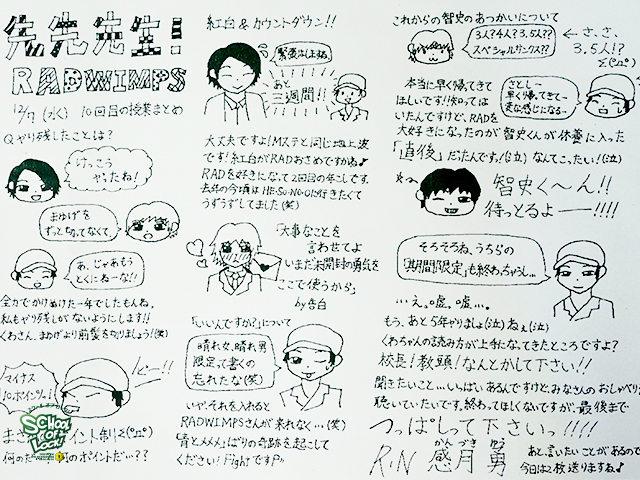 先先先生!
RADWIMPS
12/7(水) 10回目の授業まとめ
Qやり残したことは?
けっこう
やったね!
まゆげを
ずっと切ってなくて、
あ、じゃあもう
とくにねーな!!
全力でかけぬけた一年でしたもんね、
私もやり残しがないようにします!!
くわさん、まゆげより前髪を切りましょう!(笑)
マイナス
10ポインツ!
ピー!!
SCHOOL OF LOCK!
紅白&カウントダウン!!
緊張はしまする。
あと
三週間!!
大丈夫ですよ!Mステと同じ地上波
です!紅白がRADおさめですかね♪
RADを好きになって2回目の年こしです。
去年の今頃はHE-SO-NO-Oに行きたくて
うずうずしてました(笑)
「大事なことを
言わせてよ
いまだ未開封の勇気を
ここで使うから」
by告白
「いいんですか?」について
晴れ女、晴れ男
限定って書くの
忘れたな(笑)
いや、それを入れると
RADWIMPSさんが来れなく…(笑)
「青とメメメ」ばりの奇跡を起こして
ください!FightですP〃
これからの智史のあつかいについて
3人?4人?3.5人??
スペシャルサンクス??
← さ、さ、
3.5人!?
本当に早く帰ってきて
ほしいです!!知っては
いたんですけど、RADを
大好きになったのが智史くんが休養に入った
「直後」だったんです!(泣)なんてこったい!(泣)
さとしー
早く帰ってきてー
変な感じになる…
智史く〜ん!!
待っとるよ——!!!!
そろそろね、うちらの
「期間限定」も終わっちゃうし…
…え。嘘。嘘。…
もう、あと5年やりましょ(泣)ねぇ(泣)
くわちゃんの読み方が上手になってきたところですよ?
校長!教頭!なんとかして下さい!!
聞きたいこと…いっぱいあるんですけど、みなさんのおしゃべり
聴いていたいです。終わってほしくないですが、最後まで
つっぱしって下さいっ!!!!
RiN 感月勇
あと、言いたいことがあるので
今日は2枚送りますね♪